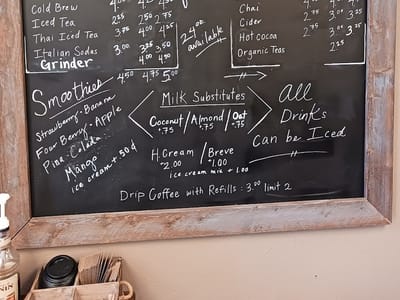 Cold Brew
Iced Tea 2.25
Thai Iced Tea 3.75 4.00 4.50
Italian Sodas 3.00 3.25 3.50
Grinder 4.00 4.50
24oz available
Chai
Cider 2.75
Hot cocoa 2.75
Organic Teas 2.25
Smoothies 4.50 4.75 5.00
Strawberry-Banana
Four Berry-Apple
Pina-Colada
Mango
ice cream + 50¢
Milk Substitutes
Coconut/Almond/Oat
.75 .75 .75
H.Cream / Breve
2.00 1.00
ice cream mix + 1.00
All
Drinks
Can be Iced
Drip Coffee with Refills: 3.00 limit 2